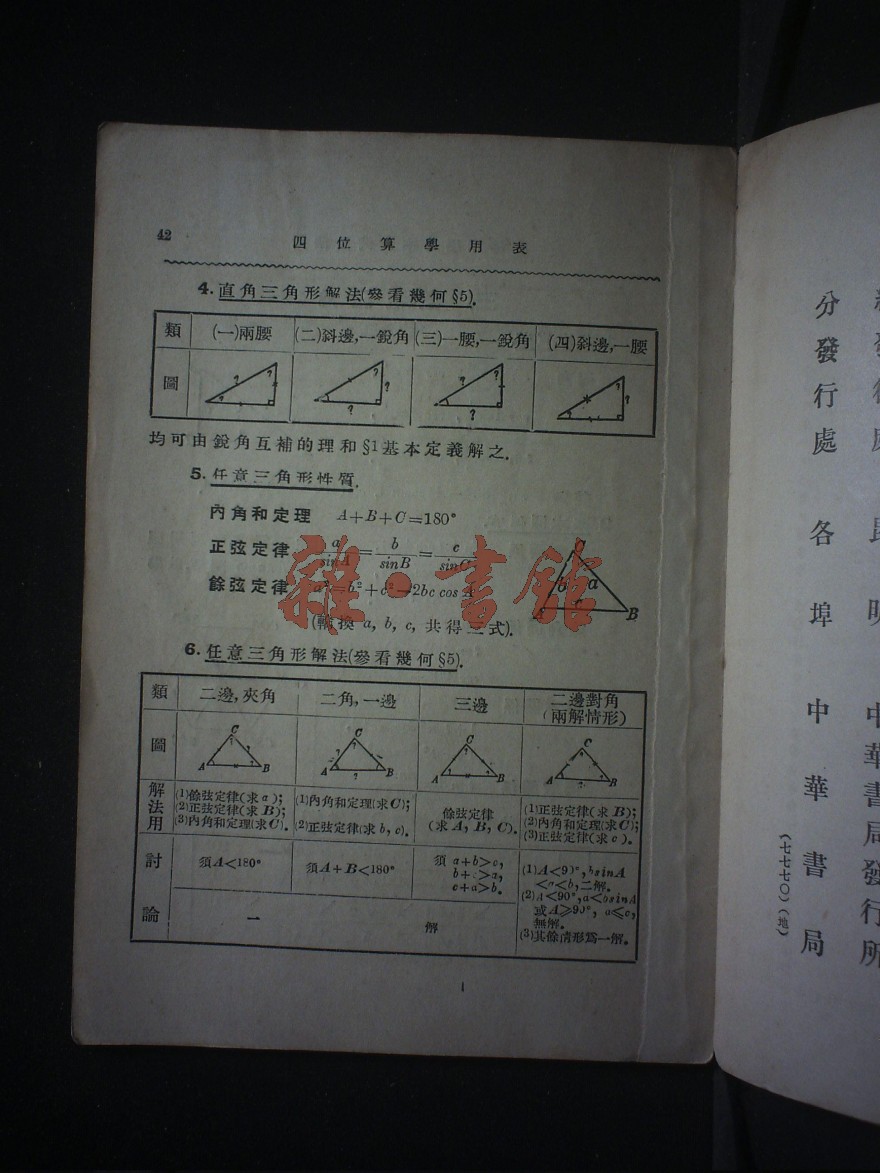 42
四位算學用表
4. 直角三角形解法(參看幾何§5).
類 (一)兩腰 (二)斜邊,一鋭角 (三)一腰,一鋭角 (四)斜邊,一腰
圖
均可由鋭角互補的理和§1基本定義解之.
5. 任意三角形性質.
內角和定理 A+B+C=180°
正弦定律 a/sinA = b/sinB = c/sinC
餘弦定律 a²=b²+c²−2bc cos A
(輪換 a, b, c, 共得三式).
雜·書館
6. 任意三角形解法(參看幾何§5).
類 二邊,夾角 二角,一邊 三邊 二邊對角
(兩解情形)
圖
解法用
(1)餘弦定律(求a);
(2)正弦定律(求B);
(3)內角和定理(求C).
(1)內角和定理(求C);
(2)正弦定律(求b, c).
餘弦定律
(求A, B, C).
(1)正弦定律(求B);
(2)內角和定理(求C);
(3)正弦定律(求c).
討論
須A<180°
須A+B<180°
須 a+b>c,
b+c>a,
c+a>b.
(1)A<90°, bsinA
<a<b, 二解.
(2)A<90°, a<bsinA
或A⩾90°,
無解.
(3)其餘情形爲一解.
一 解
1
中華書局發行所
分發行處 各埠中華書局
(七七七〇)(地)